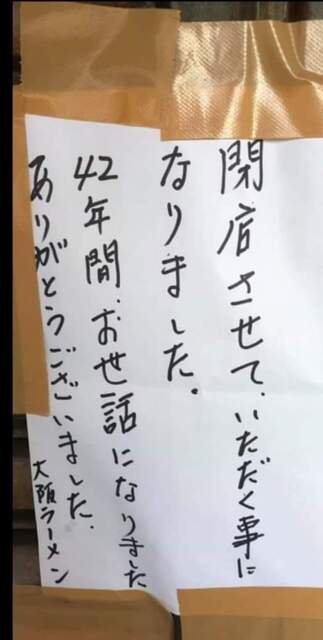 閉店させて、いただく事に
なりました。
42年間、お世話になりました
ありがとうございました.
大阪ラーメン